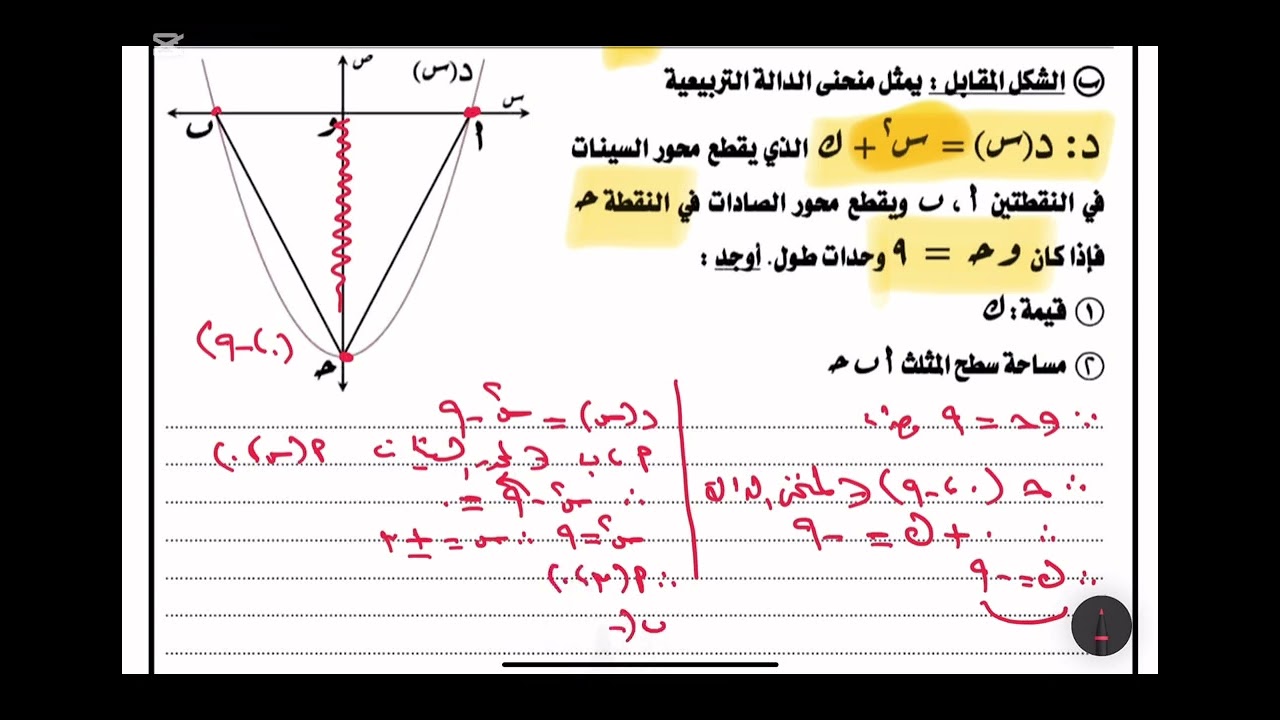 ب الشكل المقابل : يمثل منحنى الدالة التربيعية
د : د(س) = س٢ + ك الذي يقطع محور السينات
في النقطتين أ ، ب ويقطع محور الصادات في النقطة حـ
فإذا كان و حـ = ٩ وحدات طول. أوجد :
١ قيمة : ك
٢ مساحة سطح المثلث أ ب حـ
ص
د(س)
س
أ
و
ب
حـ
(٠ ، -٩)
∴ وحـ = ٩
∴ حـ (٠ ، -٩) ∈ لمنحنى الدالة
∴ ٠ + ك = -٩
∴ ك = -٩
د(س) = س٢ - ٩
أ ، ب ∈ لمحور السينات أ(س ، ٠)
∴ س٢ - ٩ = ٠
س٢ = ٩ ∴ س = ± ٣
∴ أ(٣ ، ٠)
ب (-